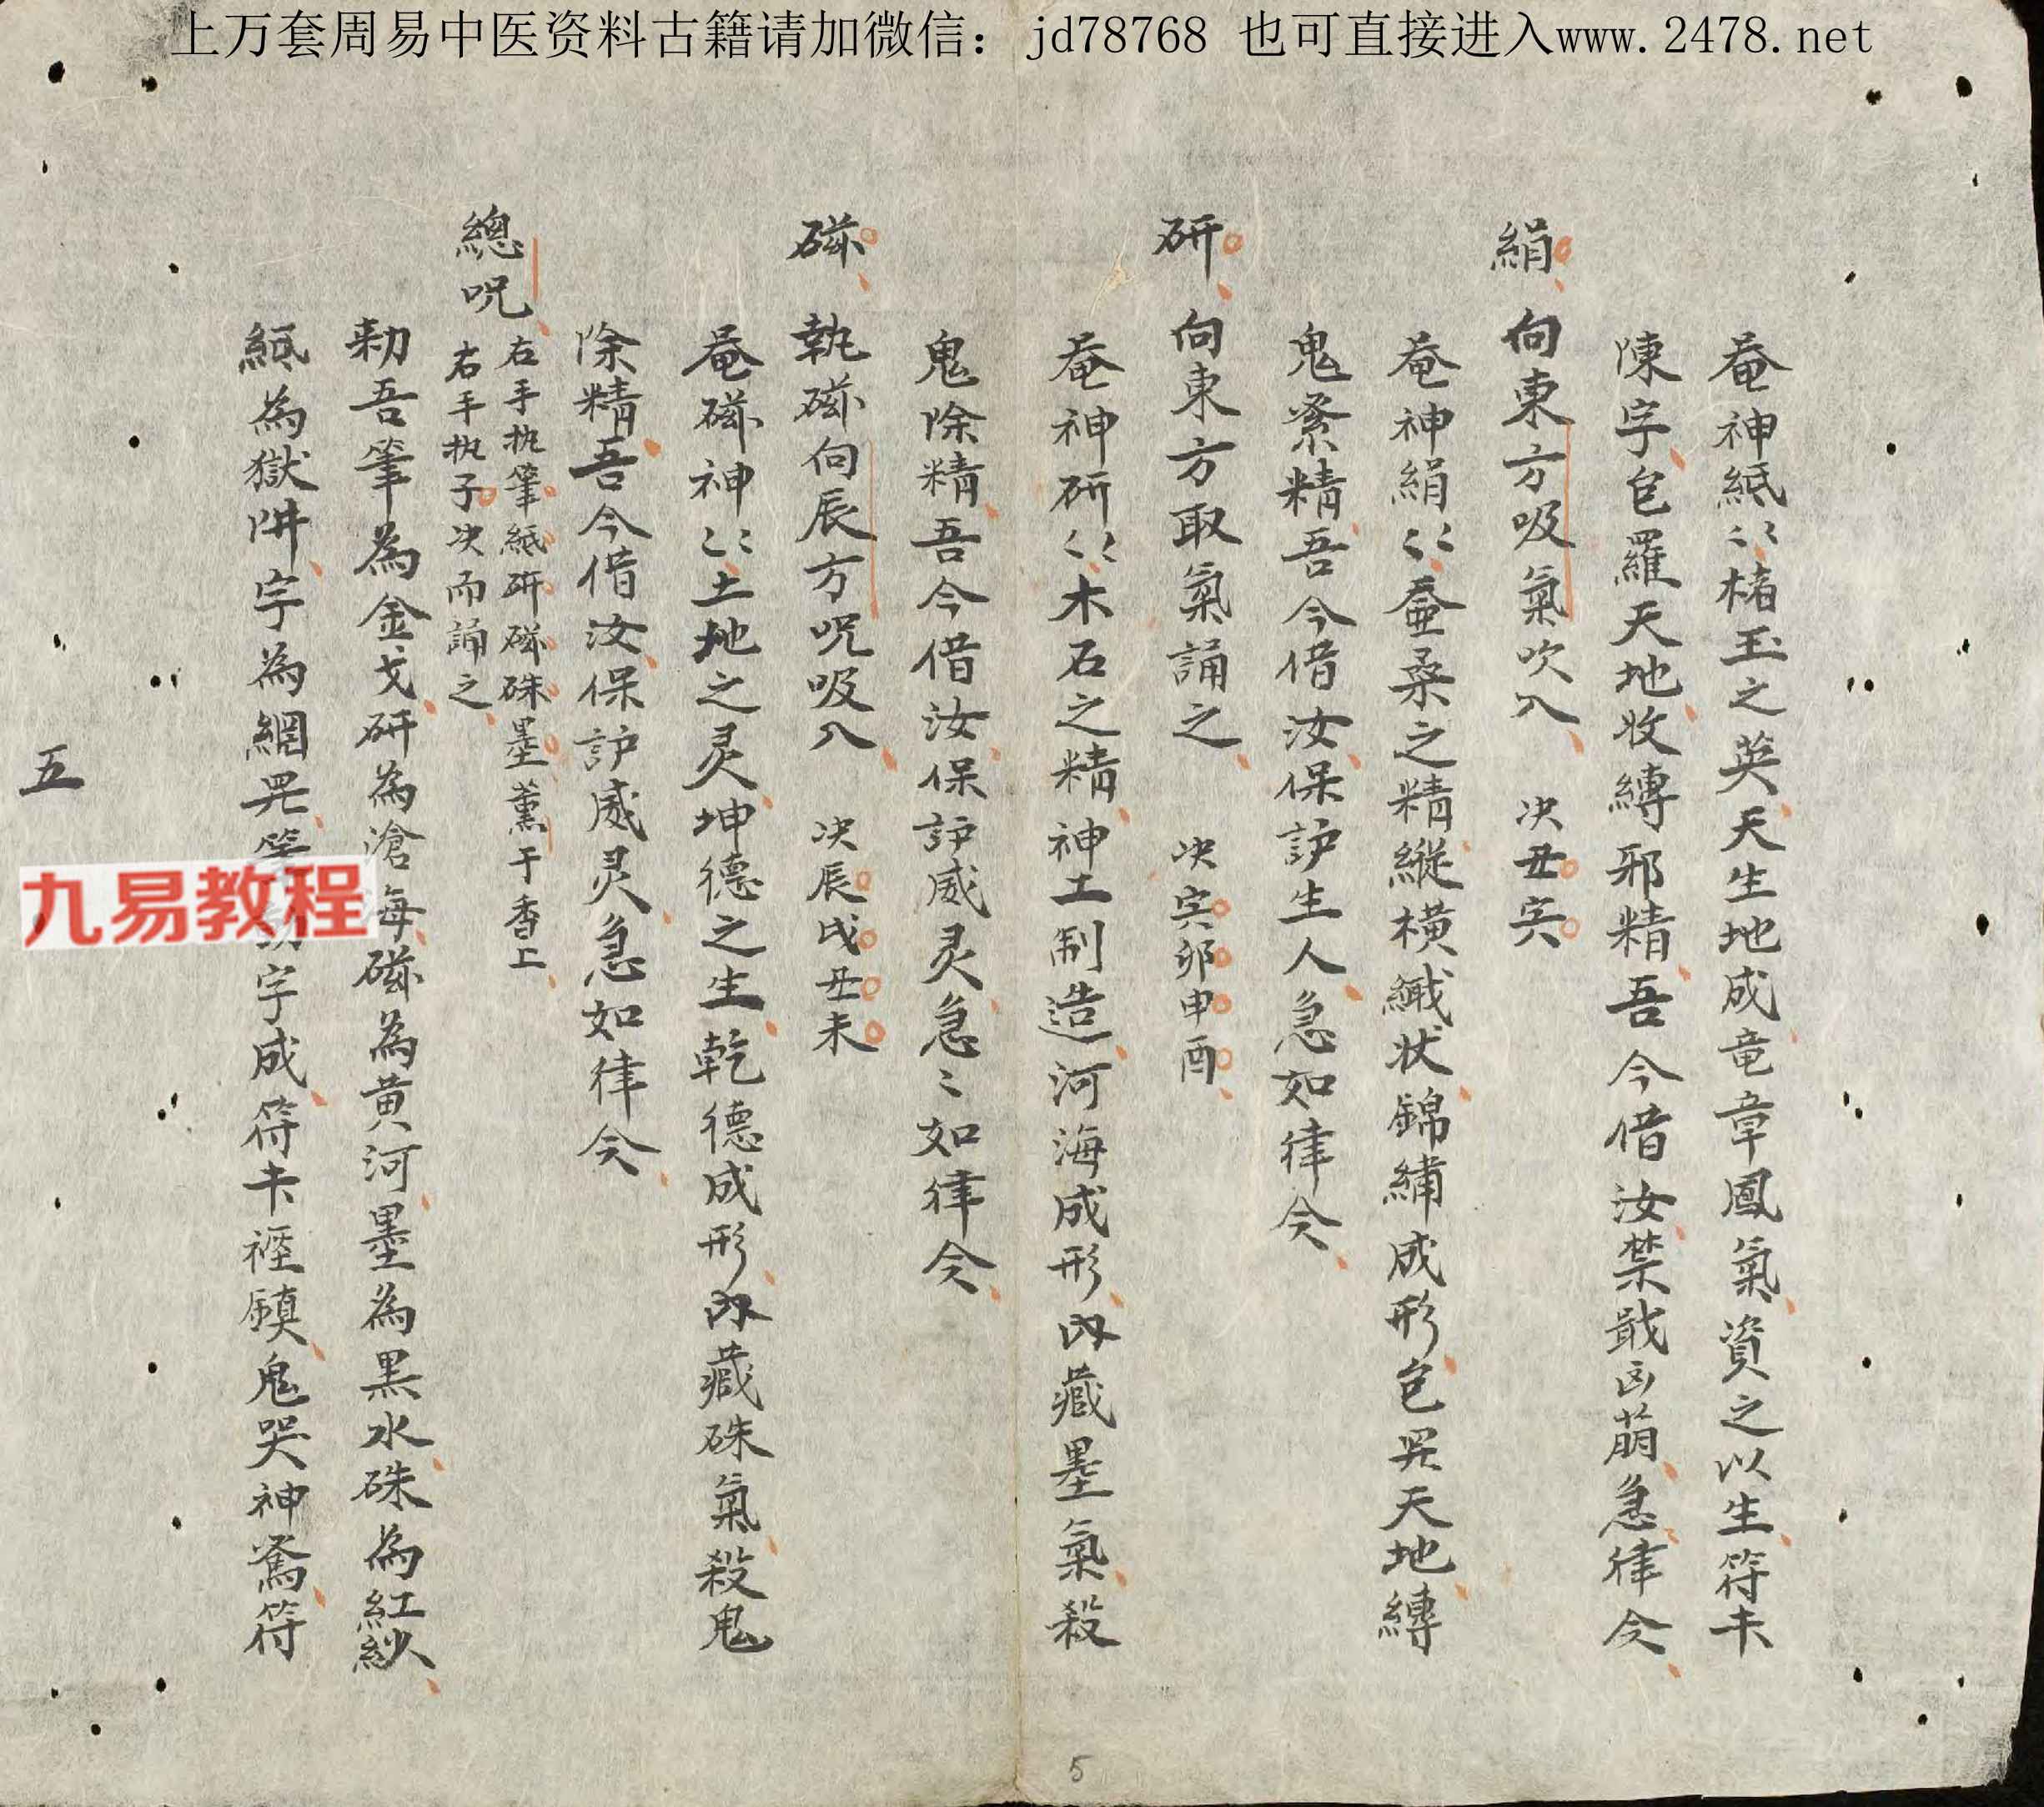 上万套周易中医资料古籍请加微信： jd78768 也可直接进入www.2478.net
奄神紙〻楮玉之英天生地成竜章鳳氣資之以生符卡
陳字包羅天地收縛邪精吾今借汝禁戢凶萠急律令
絹 向東方吸氣吹入 决丑寅
奄神絹〻蚕桑之精縱横織状錦繡成形包罗天地縛
鬼紊精吾今借汝保护生人急如律令
研 向東方取氣誦之 决寅卯申酉
奄神研〻木石之精神工制造河海成形內藏墨氣殺
鬼除精吾今借汝保护威灵急〻如律令
磁 執磁向辰方咒吸入 决辰戌丑未
奄磁神〻土地之灵坤德之生乾德成形內藏硃氣殺鬼
除精吾今借汝保护威灵急如律令
總咒 右手执筆紙研磁硃墨薰于香上
右手执子决而誦之
勑吾筆為金戈研為滄海磁為黄河墨為黒水硃為紅紗
紙為獄阱字為網罗筆字成符卡 鎮鬼哭神驚符
五
九易教程
5